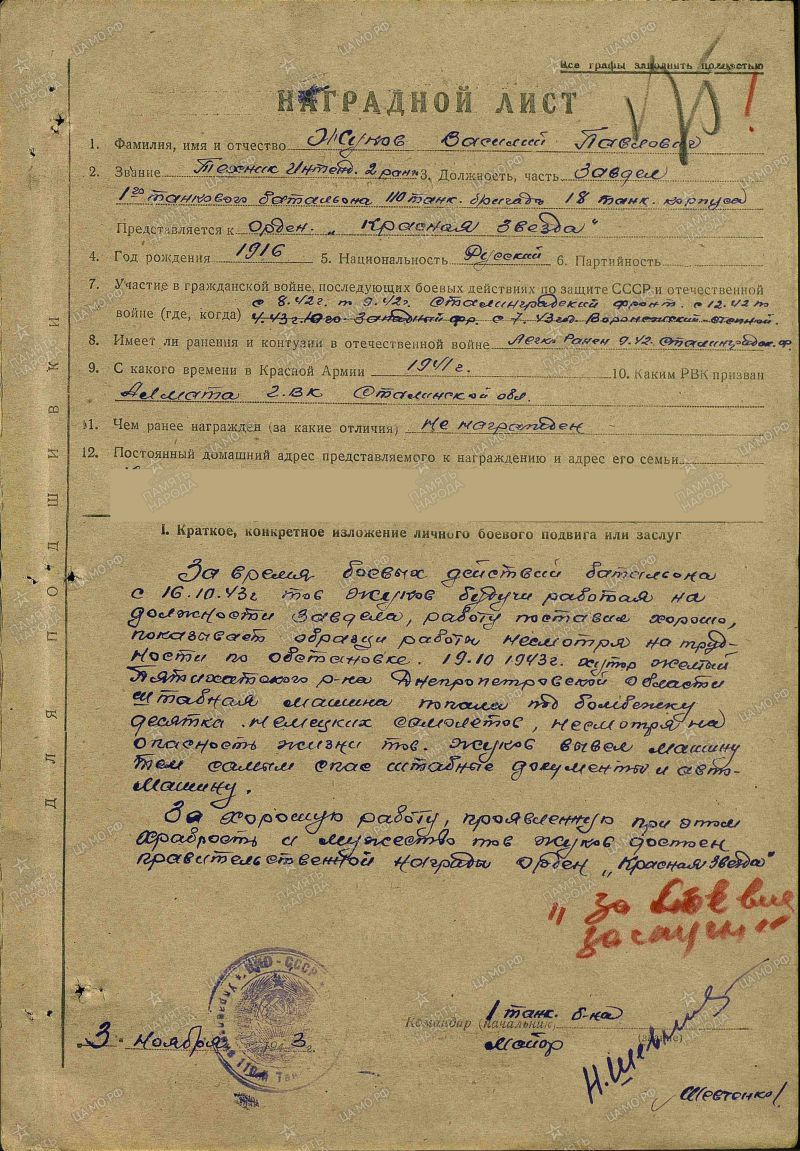 Все графы заполнить полностью
НАГРАДНОЙ ЛИСТ
1. Фамилия, имя и отчество Жуков Василий Павлович
2. Звание Техник Интенд. 2 ранг 3. Должность, часть Завдел
1го танкового батальона 110 танк. бригады 18 танк. корпуса
Представляется к Орден. „Красная Звезда"
4. Год рождения 1916 5. Национальность Русский 6. Партийность
7. Участие в гражданской войне, последующих боевых действиях по защите СССР и отечественной
с 8.42г. п 9.42г. Сталинградский фронт. с 12.42 п
войне (где, когда) 4.43г. Юго-Западный фр. с 7.43 Воронежский-степной.
8. Имеет ли ранения и контузии в отечественной войне Легко Ранен 9.42. Сталинградск. ф.
9. С какого времени в Красной Армии 1941г. 10. Каким РВК призван
ГВК Сталинской обл.
11. Чем ранее награжден (за какие отличия) не награжден
12. Постоянный домашний адрес представляемого к награждению и адрес его семьи
I. Краткое, конкретное изложение личного боевого подвига или заслуг
За время боевых действий батальона
с 16.10.43г тов Жуков будучи работая на
должности Завдела, работу поставил хорошо,
показывает образцы работы несмотря на труд-
ности по обстановке. 19.10 1943г. хутор Желтый
Пятихатского р-на Днепропетровской Области
штабная машина попала под бомбежку
десятка немецких самолетов, несмотря на
опасность жизни тов. Жуков вывел машину
тем самым спас штабные документы и авто-
машину.
За хорошую работу, проявленную при этом
храбрость и мужество тов Жуков достоен
правительственной награды Орден „Красная Звезда"
„за боевые
заслуги"
Командир (начальник) 1 танк. б-на
3 Ноября 1943г.
Майор (звание)
Н. Шевченко
/Шевченко/.
ДЛЯ ПОДШИВКИ